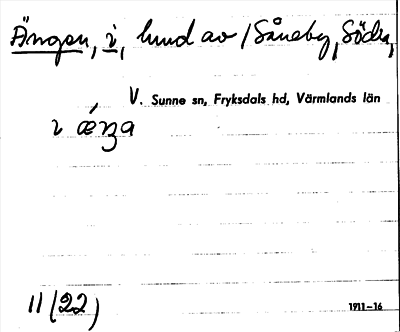 Ängen, i, lund av /Såneby, Södra,
V. Sunne sn, Fryksdals hd, Värmlands län
11 (22)
1911–16